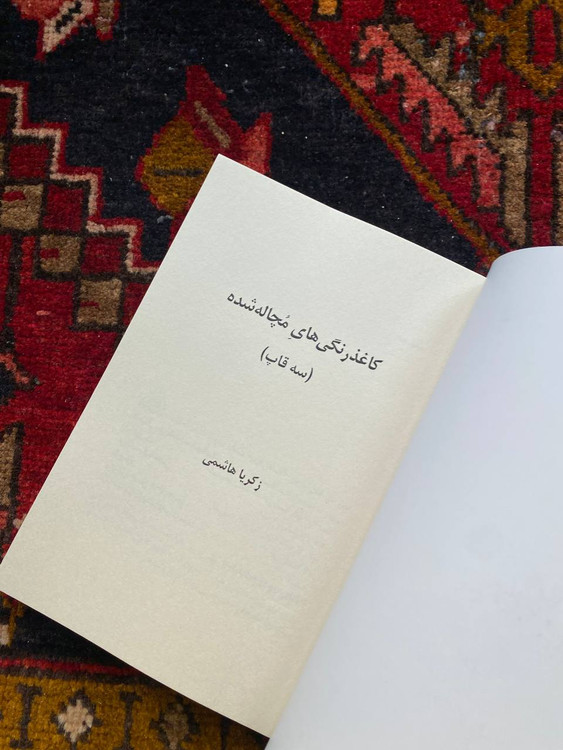 کاغذرنگی‌هایِ مُچاله‌شده
(سه قاپ)
زکریا هاشمی